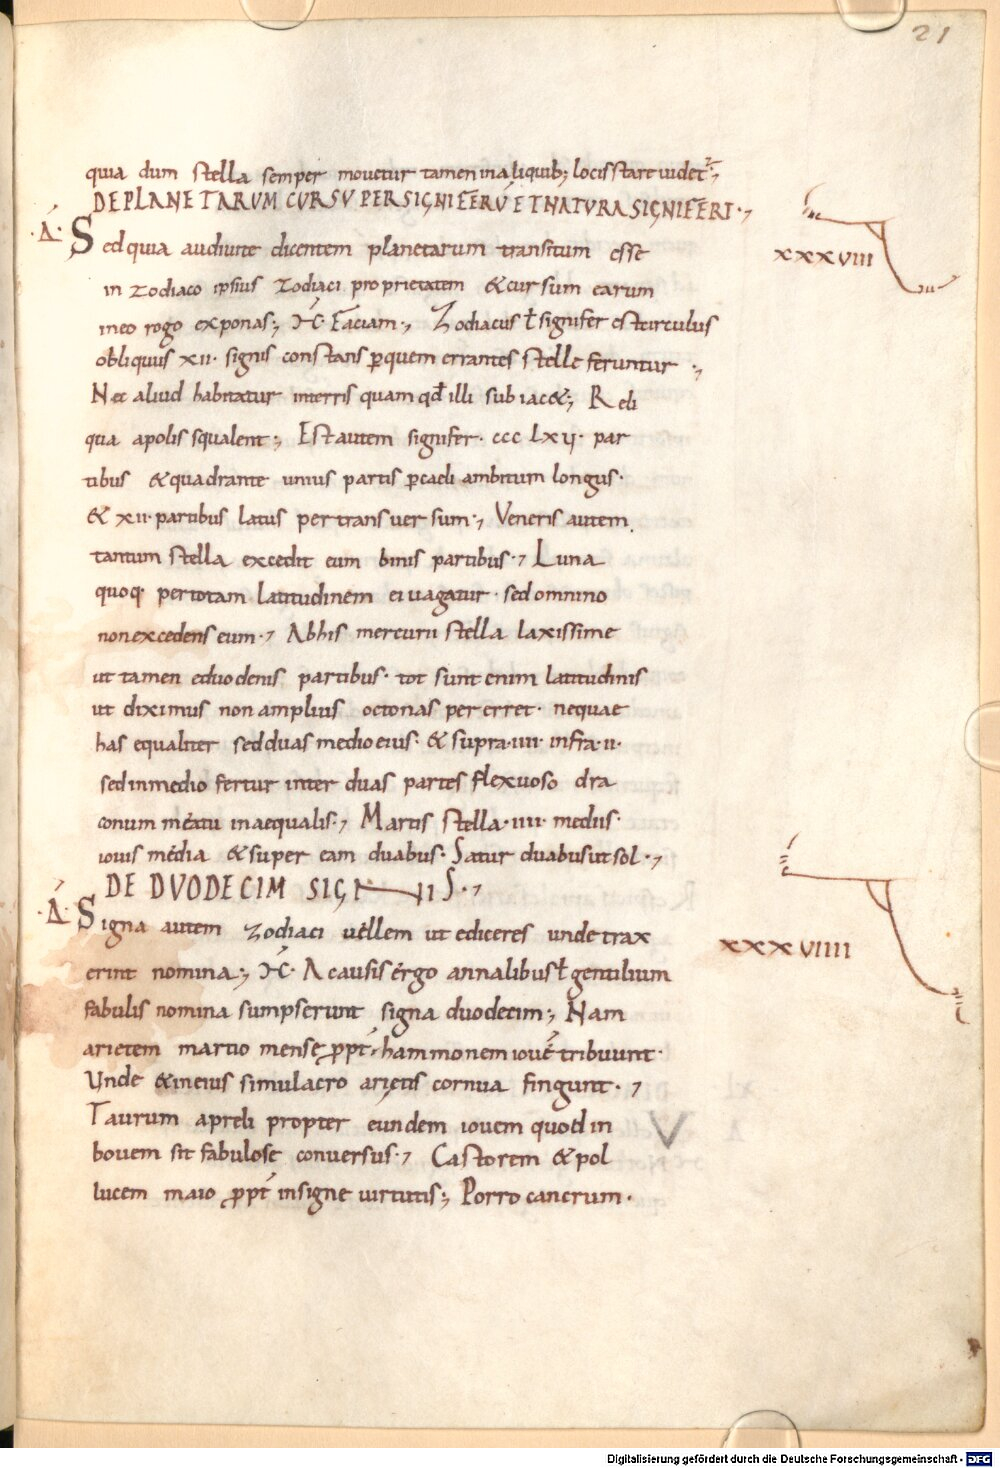 21
quia dum stella semper mouetur tamen in aliquib; locis stare uidet᷑;,
DE PLANETARUM CURSU PER SIGNIFERŪ ET NATURA SIGNIFERI·,
·Δ· Sed quia audiui te dicentem planetarum transitum esse
xxxviii
in zodiaco ipsius zodiaci proprietatem & cursum earum
in eo rogo exponas;, ⳩· Faciam·, Zodiacus ł signifer est circulus
obliquus xii· signis constans ꝑ quem errantes stelle feruntur ·,
Nec aliud habitatur in terris quam qđ illi subiac&;, Reli
qua a polis squalent;, Est autem signifer· ccc Lxv· par
tibus & quadrante unius partis ꝑ caeli ambitum longus·
& xii· partibus latus per transuersum·, Veneris autem
tantum stella excedit eum binis partibus·, Luna
quoq· per totam latitudinem ei uagatur· sed omnino
non excedens eum·, Ab his mercurii stella laxissime
ut tamen e duodenis partibus· tot sunt enim latitudinis
ut diximus non amplius octonas pererret· nequae
has equaliter sed duas medio eius· & supra·iiii· infra·ii·
sed in medio fertur inter duas partes flexuoso dra
conum meatu inaequalis·, Martis stella·iiii· mediis·
iouis media & super eam duabus· Satur duabus ut sol·,
DE DUODECIM SIGNIIS·,
·Δ· Signa autem zodiaci uellem ut ediceres unde trax
xxxviiii
erint nomina·;, ⳩· A causis ergo annalibus ł gentilium
fabulis nomina sumpserunt signa duodecim;, Nam
arietem martio mense ꝓpt̄· hammonem iouē tribuunt·
Unde & in eius simulacro arietis cornua fingunt·,
Taurum apreli propter eundem iouem quod in
bouem sit fabulose conuersus·, Castorem & pol
lucem maio ꝓpt̄ insigne uirtutis;, Porro cancrum·
Digitalisierung gefördert durch die Deutsche Forschungsgemeinschaft - DFG